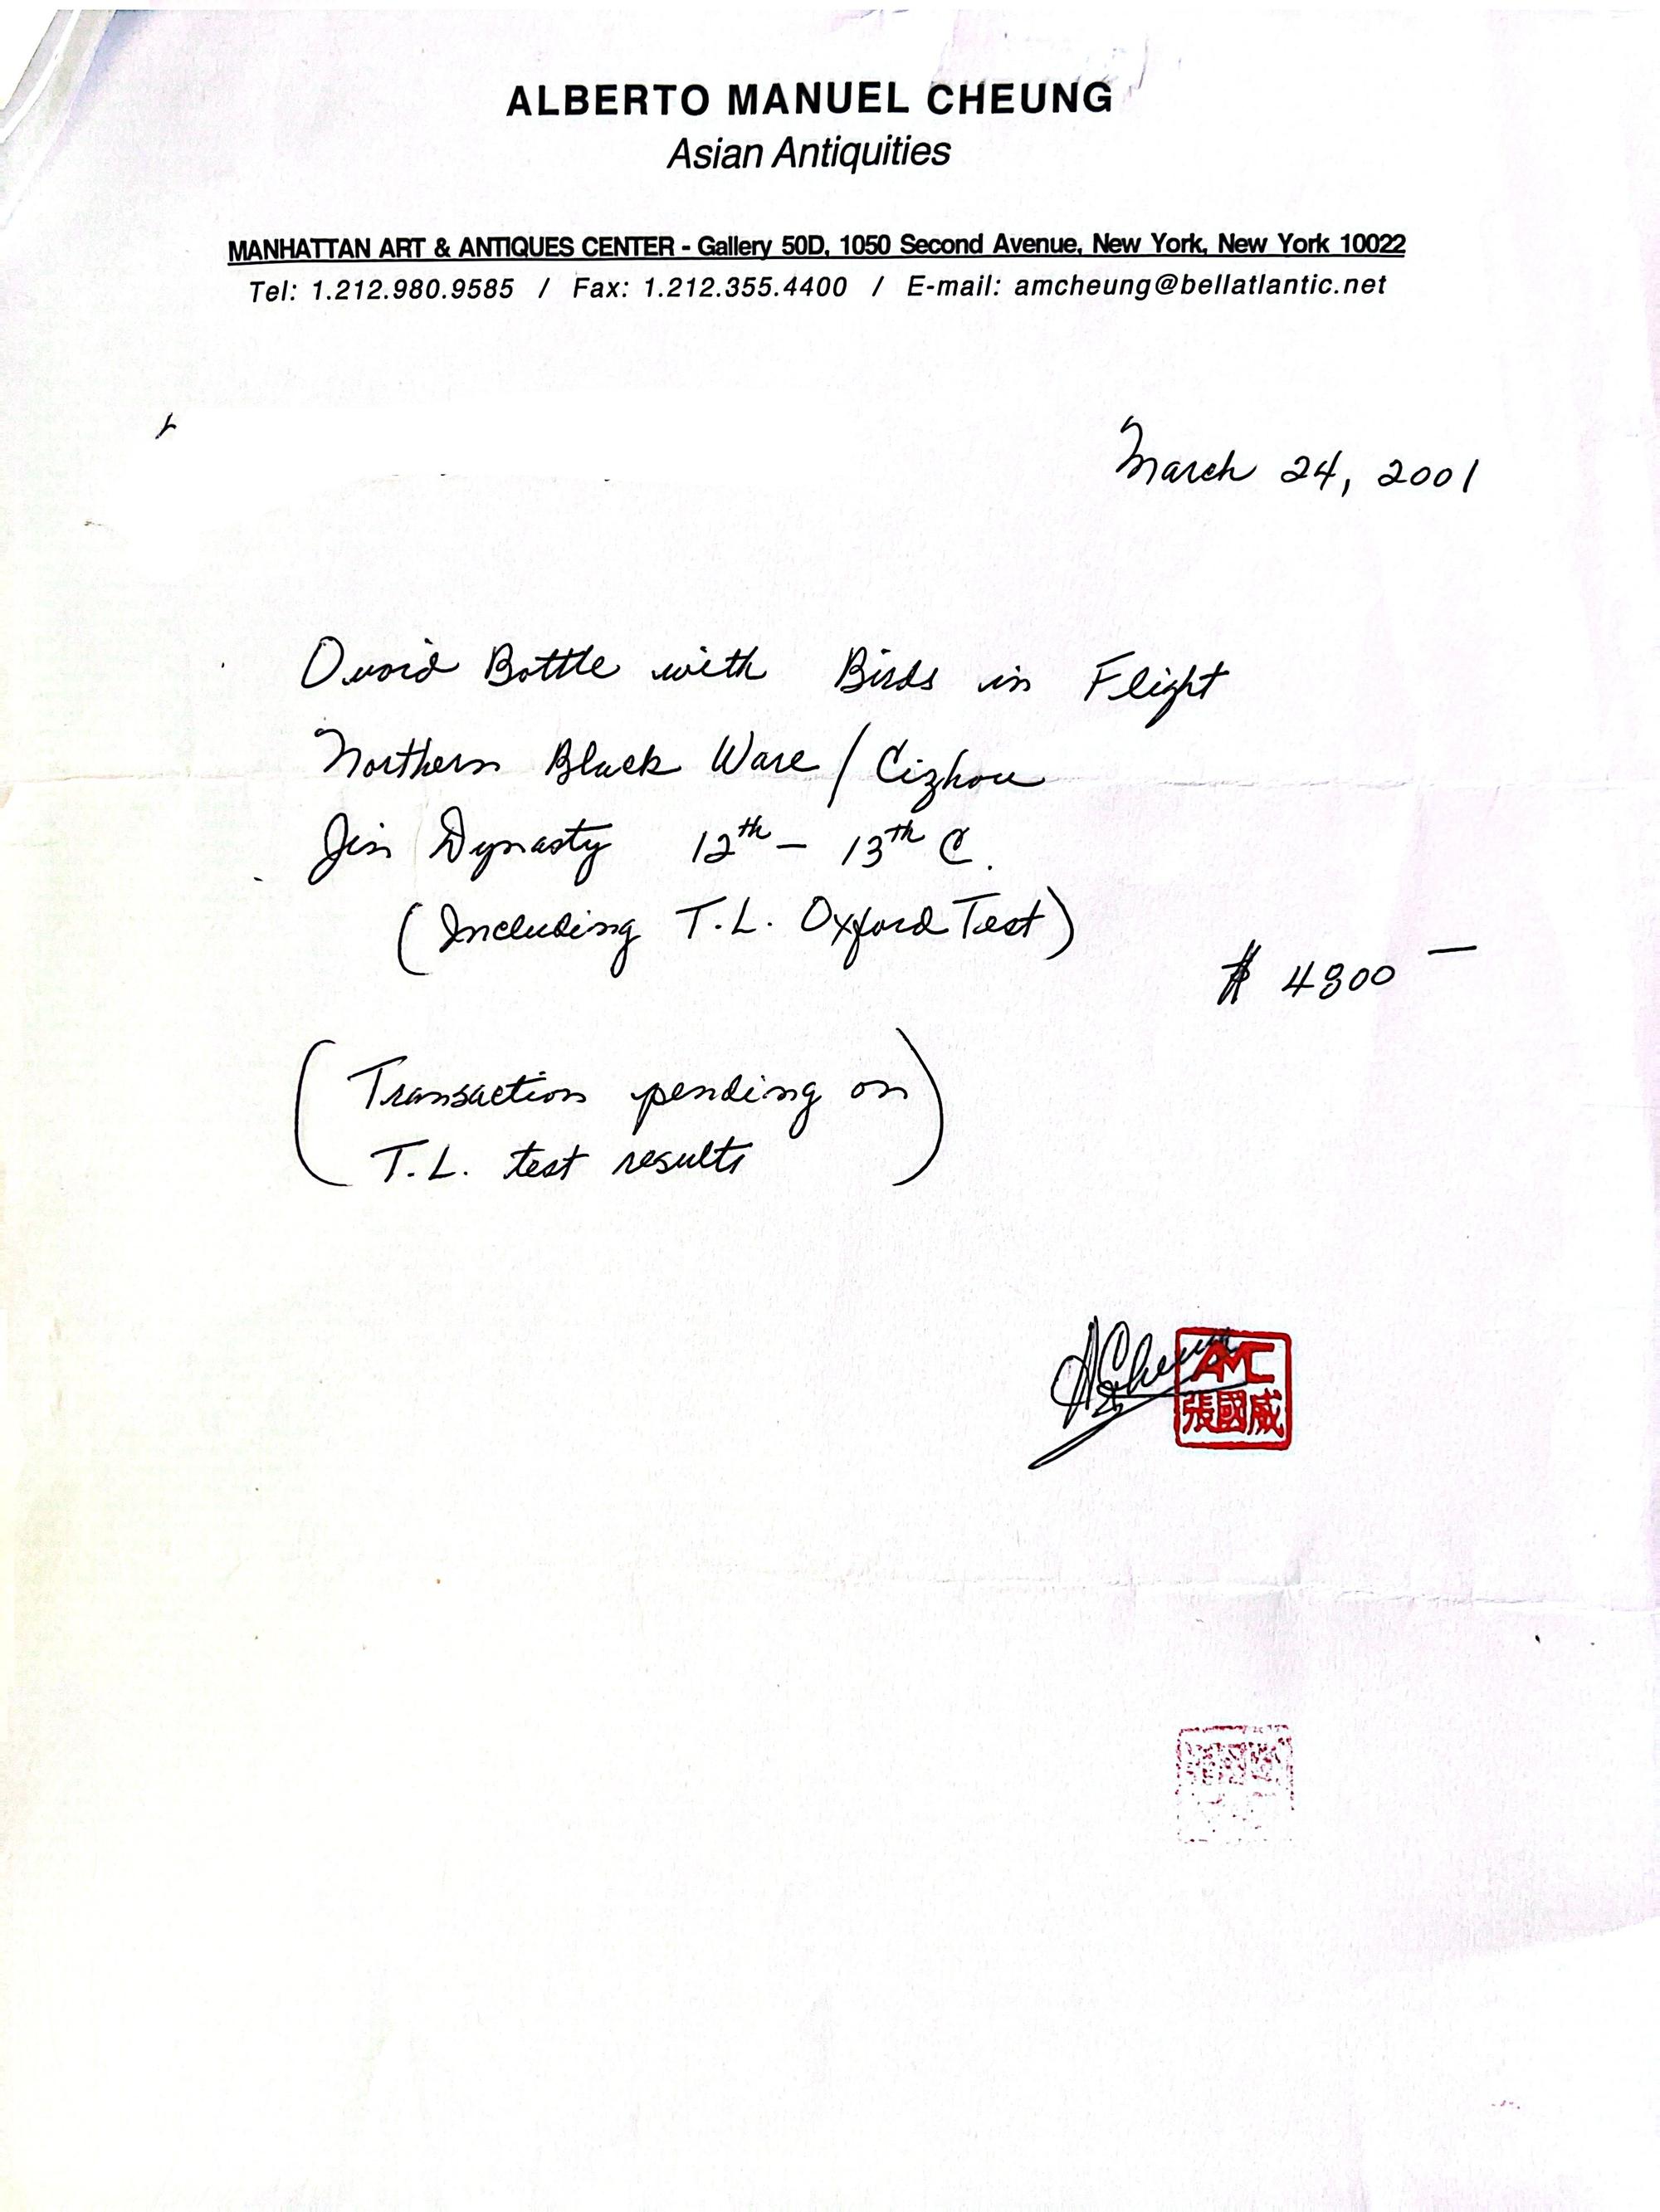 ALBERTO MANUEL CHEUNG
Asian Antiquities
MANHATTAN ART & ANTIQUES CENTER - Gallery 50D, 1050 Second Avenue, New York, New York 10022
Tel: 1.212.980.9585 / Fax: 1.212.355.4400 / E-mail: amcheung@bellatlantic.net
March 24, 2001
Ovoid Bottle with Birds in Flight
Northern Black Ware / Cizhou
Jin Dynasty 12th - 13th C.
(Including T.L. Oxford Test)
$ 4800 -
(Transaction pending on
T.L. test results)
ACheung
AMC
張國威